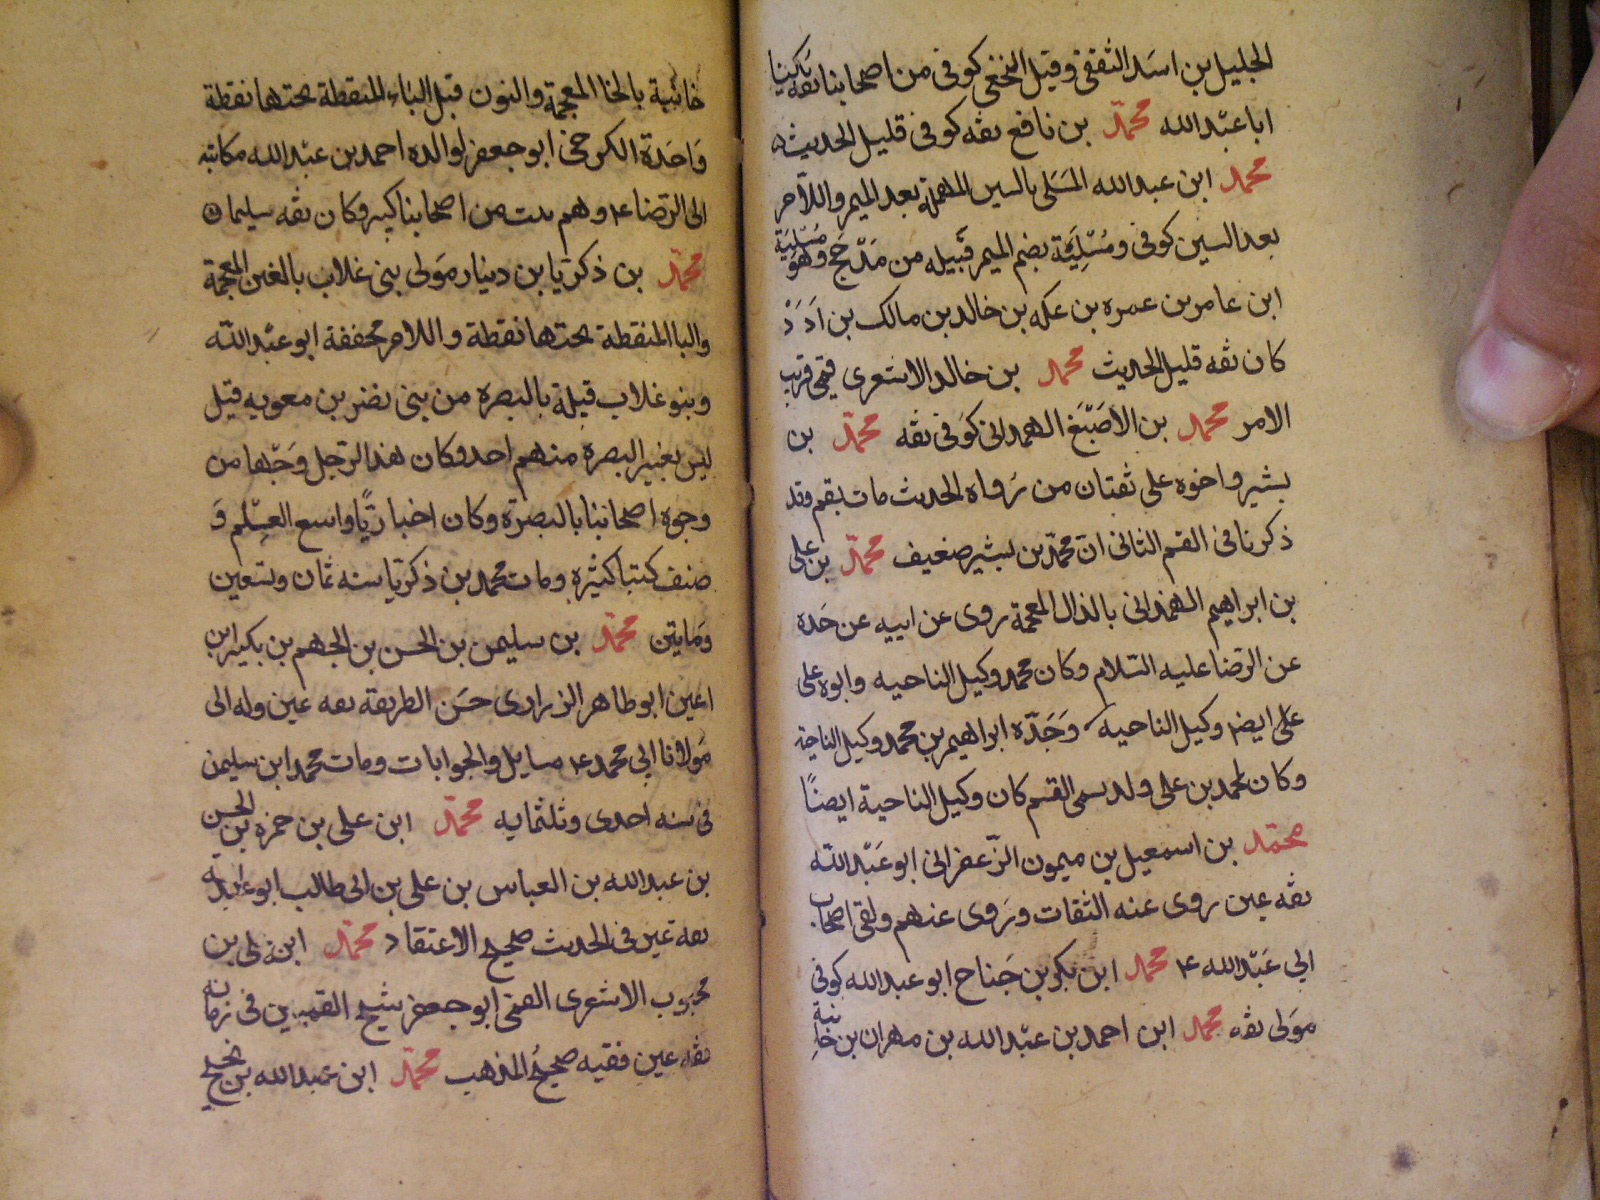 الجليل بن اسد الثقفى وقيل النخعى كوفى من اصحابنا ثقه يكنى
ابا عبد الله محمد بن نافع ثقه كوفى قليل الحديث
محمد ابن عبد الله المسلى بالسين المهملة بعد الميم واللام
بعد السين كوفى ومسلية بضم الميم قبيله من مذحج وهو مسلية
ابن عامر بن عمره بن عكه بن خالد بن مالك بن ادد
كان ثقه قليل الحديث محمد بن خالد الاشعرى قمى قريب
الامر محمد بن الاصبغ الهمدانى كوفى ثقه محمد بن
بشير واخوه على ثقتان من رواه الحديث مات بقم وقد
ذكرنا فى القسم الثانى ان محمد بن بشير ضعيف محمد بن على
بن ابراهيم الهمذانى بالذال المعجمة روى عن ابيه عن جده
عن الرضا عليه السلام وكان محمد وكيل الناحيه وابوه على
على ايضا وكيل الناحيه وجده ابراهيم بن محمد وكيل الناحية
وكان لمحمد بن على ولد يسمى القسم كان وكيل الناحية ايضا
محمد بن اسمعيل بن ميمون الزعفرانى ابو عبد الله
ثقه عين روى عنه الثقات وروى عنهم ولقى اصحاب
ابى عبد الله ع محمد ابن بكر بن جناح ابو عبد الله كوفى
مولى ثقه محمد ابن احمد بن عبد الله بن مهران بن خانبة
خانبة بالخا المعجمة والنون قبل الباء المنقطة تحتها نقطة
واحدة الكرخى ابو جعفر لوالده احمد بن عبد الله مكاتبه
الى الرضا ع وهم بيت من اصحابنا كبير وكان ثقه سليما
محمد بن زكريا بن دينار مولى بنى غلاب بالغين المعجمة
والبا المنقطة تحتها نقطة واللام مخففة ابو عبد الله
وبنو غلاب قبيلة بالبصره من بنى نضر بن معويه قيل
ليس بغير البصره منهم احد وكان هذا الرجل وجها من
وجوه اصحابنا بالبصرة وكان اخباريا واسع العلم و
صنف كتبا كثيره ومات محمد بن زكريا سنه ثمان وتسعين
ومايتن محمد بن سليمن بن الحسن بن الجهم بن بكير ابن
اعين ابو طاهر الزرارى حسن الطريقه ثقه عين وله الى
مولانا ابى محمد ع مسايل والجوابات ومات محمد ابن سليمن
فى سنه احدى وثلثمايه محمد ابن على بن حمزه بن الحسن
بن عبد الله بن العباس بن على بن ابى طالب ابو عبد الله
ثقه عين فى الحديث صحيح الاعتقاد محمد ابن على بن
محبوب الاشعرى القمى ابو جعفر شيخ القميين فى زمانه
ثقه عين فقيه صحيح المذهب محمد ابن عبد الله بن نجيح